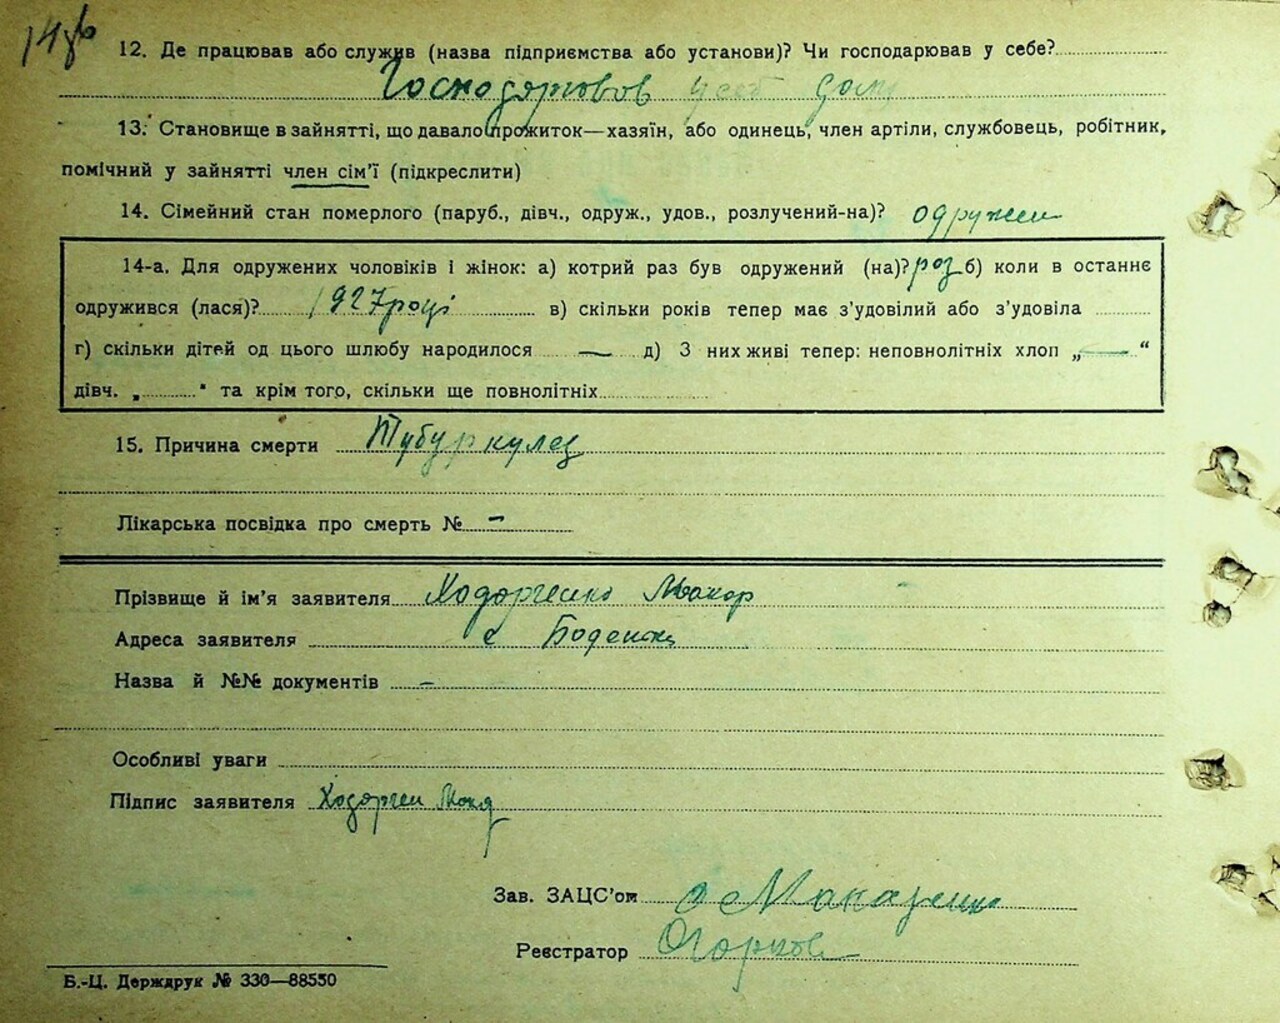 12. Де працював або служив (назва підприємства або установи)? Чи господарював у себе?
13. Становище в зайнятті, що давало прожиток—хазяїн, або одинець, член артіли, службовець, робітник,
помічний у зайнятті член сім’ї (підкреслити)
14. Сімейний стан померлого (паруб., дівч., одруж., удов., розлучений-на)? одружен
14-а. Для одружених чоловіків і жінок: а) котрий раз був одружений (на)? раз б) коли в останнє
одружився (лася)? 1927 році в) скільки років тепер має з’удовілий або з’удовіла
г) скільки дітей од цього шлюбу народилося — д) З них живі тепер: неповнолітніх хлоп „—“
дівч. „ “ та крім того, скільки ще повнолітніх
15. Причина смерти Тубуркулез
Лікарська посвідка про смерть № -
Прізвище й ім’я заявителя Ходорченко Макар
Адреса заявителя с
Назва й №№ документів -
Особливі уваги
Підпис заявителя
Зав. ЗАЦС’ом Макаренко
Реєстратор
Б.-Ц. Держдрук № 330—88550